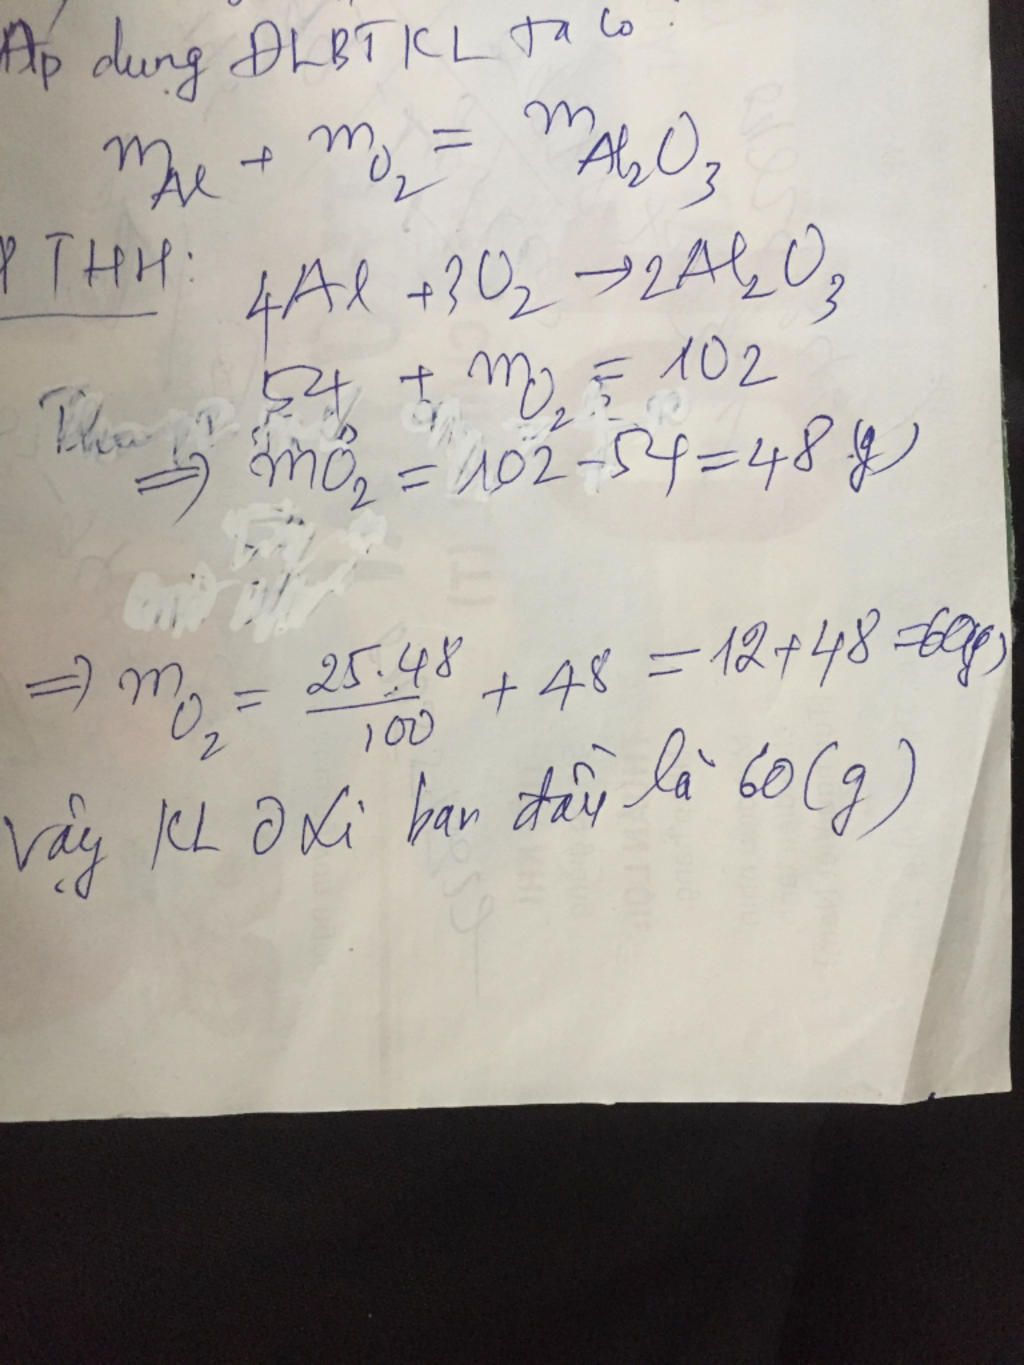 Áp dụng ĐLBTKL ta có:
mAl + mO2 = mAl2O3
PTHH: 4Al + 3O2 → 2Al2O3
54 + mO2 = 102
=> mO2 = 102 - 54 = 48 (g)
=> mO2 = 25.48/100 + 48 = 12 + 48 = 60(g)
Vậy KL Oxi ban đầu là 60 (g)